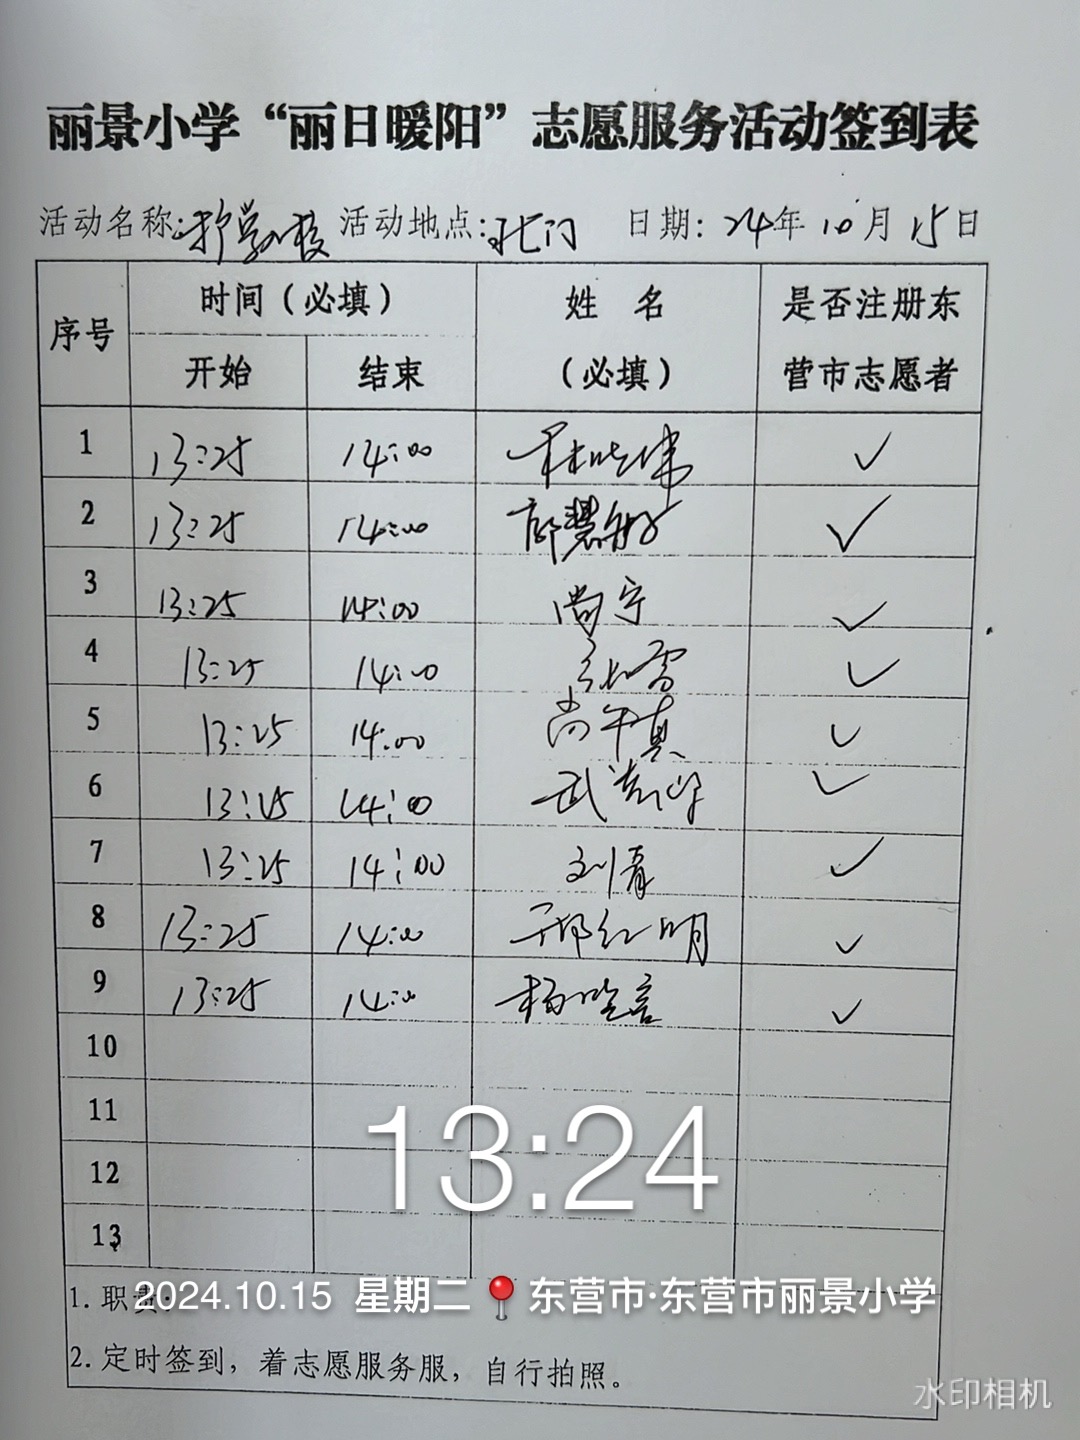 丽景小学“丽日暖阳”志愿服务活动签到表
活动名称:护学校 活动地点:北门 日期: 24年 10月 15日
序号 时间(必填) 姓 名 是否注册东
开始 结束 (必填) 营市志愿者
1 13:25 14:00 ✓
2 13:25 14:00 邱慧敏 ✓
3 13:25 14:00 尚宁 ✓
4 13:25 14:00 张雪 ✓
5 13:25 14:00 尚午真 ✓
6 13:25 14:00 武 ✓
7 13:25 14:00 刘青 ✓
8 13:25 14:00 邢红明 ✓
9 13:25 14:00 杨晓言 ✓
10
11
12
13
13:24
1. 职责:
2024.10.15 星期二 东营市·东营市丽景小学
2. 定时签到，着志愿服务服，自行拍照。
水印相机